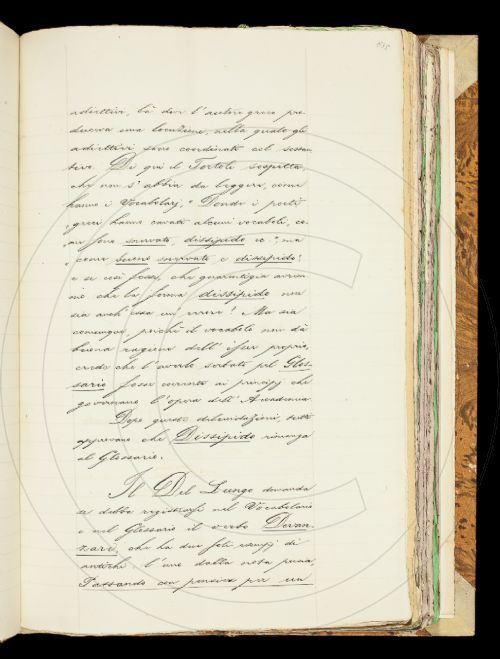 adiettivi, là dove l'autore greco pro-
duceva una locuzione, nella quale gli
adiettivi sono coordinati col sostan-
tivo. Di qui il Tortoli sospetta,
che non s'abbia da leggere, come
hanno i Vocabolarj, "Donde i poeti
greci hanno cavato alcuni vocaboli, co-
me suono snervato, dissipido ec.", ma
"come suono snervato e dissipido".
e se così fosse, che guarentigia avrem-
mo che la forma dissipido non
sia anch'essa un errore? Ma sia
comunque, poichè il vocabolo non dà
buona ragione dell'esser proprio,
crede che l'averlo serbato pel Glos-
sario fosse coerente ai principj che
governano l'opera dell'Accademia.
Dopo queste dilucidazioni, tutti
approvano che Dissipido rimanga
al Glossario.
Il Del Lungo domanda
se debba registrarsi nel Vocabolario
o nel Glossario il verbo Divan-
zare, che ha due soli esempj di
antichi: l'uno dalla nota prima,
Passando con pensier per un